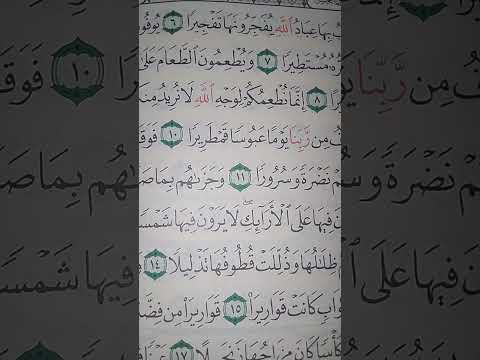 بِهَا عِبَادُ ٱللَّهِ يُفَجِّرُونَهَا تَفْجِيرًا ٦ يُوفُو
مُسْتَطِيرًا ٧ وَيُطْعِمُونَ ٱلطَّعَامَ عَلَىٰ
رًا ٨ إِنَّمَا نُطْعِمُكُمْ لِوَجْهِ ٱللَّهِ لَا نُرِيدُ مِنكُ
فُ مِن رَّبِّنَا يَوْمًا عَبُوسًا قَمْطَرِيرًا ١٠ فَوَقَ
مْ نَضْرَةً وَسُرُورًا ١١ وَجَزَىٰهُم بِمَا صَ
نَ فِيهَا عَلَى ٱلْأَرَآئِكِ لَا يَرَوْنَ فِيهَا شَمْسً
ظِلَٰلُهَا وَذُلِّلَتْ قُطُوفُهَا تَذْلِيلًا ١٤
وَابٍ كَانَتْ قَوَارِيرَا۠ ١٥ قَوَارِيرَا۟ مِن فِضَّ
كَأْسًا كَانَ مِزَاجُهَا زَنجَبِيلًا ١٧